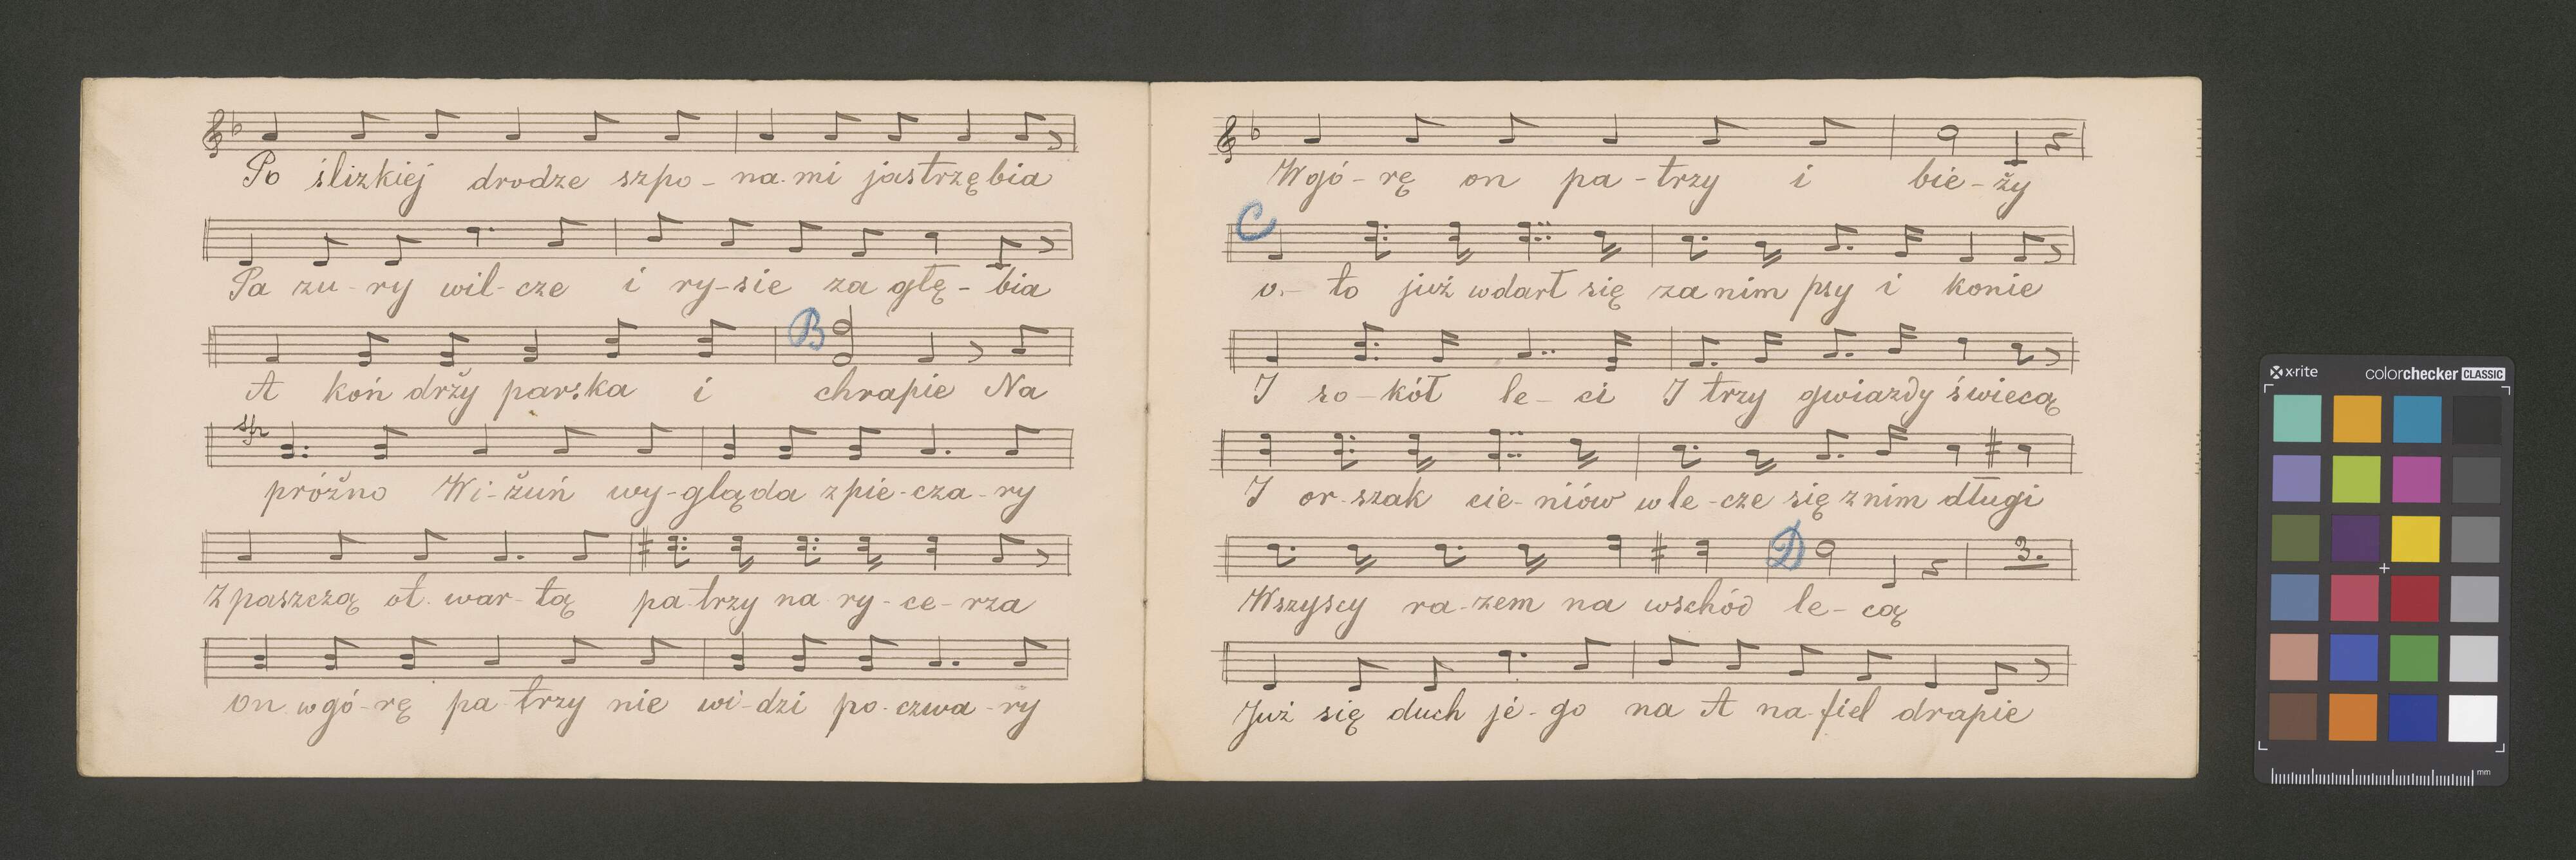 Po ślizkiej drodze szpo-na-mi jastrzębia
Pa zu-ry wil-cze i ry-sie za głę-bia
B
A koń drży parska i chrapie Na
próżno Wi-żuń wy-gląda z pie-cza-ry
Z paszczą ot-war-tą pa-trzy na ry-ce-rza
on w gó-rę pa-trzy nie wi-dzi po-czwa-ry
W gó-rę on pa-trzy i bie-ży
C
o-to już wdarł się za nim psy i konie
I so-kół le-ci I trzy gwiazdy świecą
I or-szak cie-niów wle-cze się z nim długi
D 3.
Wszyscy ra-zem na wschód le-cą
Już się duch je-go na A na-fiel drapie
x-rite colorchecker CLASSIC
mm